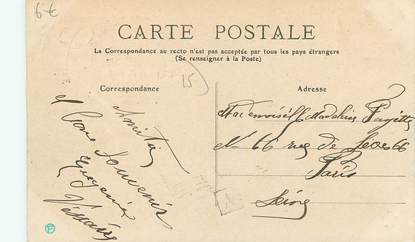 6€
CARTE POSTALE
La Correspondance au recto n'est pas acceptée par tous les pays étrangers
(Se renseigner à la Poste)
Correspondance
Adresse
15
Amitiés
et bons souvenirs
Eugénie
Mademoiselle Madeleine
N 66 rue de
Paris
Seine
A